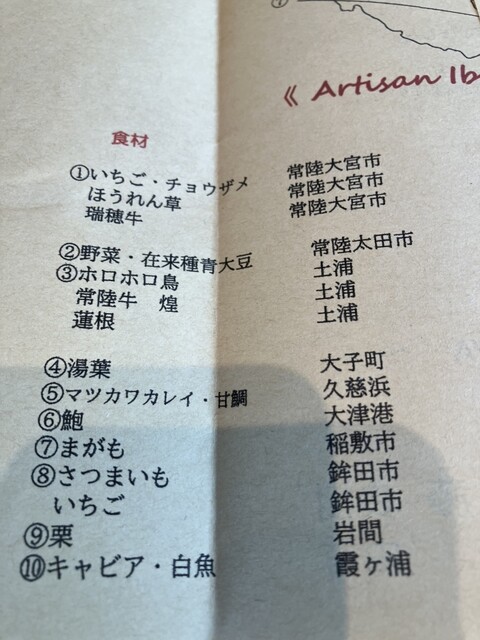 《 Artisan Ib
食材
①いちご・チョウザメ 常陸大宮市
ほうれん草 常陸大宮市
瑞穂牛 常陸大宮市
②野菜・在来種青大豆 常陸太田市
③ホロホロ鳥 土浦
常陸牛 煌 土浦
蓮根 土浦
④湯葉 大子町
⑤マツカワカレイ・甘鯛 久慈浜
⑥鮑 大津港
⑦まがも 稲敷市
⑧さつまいも 鉾田市
いちご 鉾田市
⑨栗 岩間
⑩キャビア・白魚 霞ヶ浦